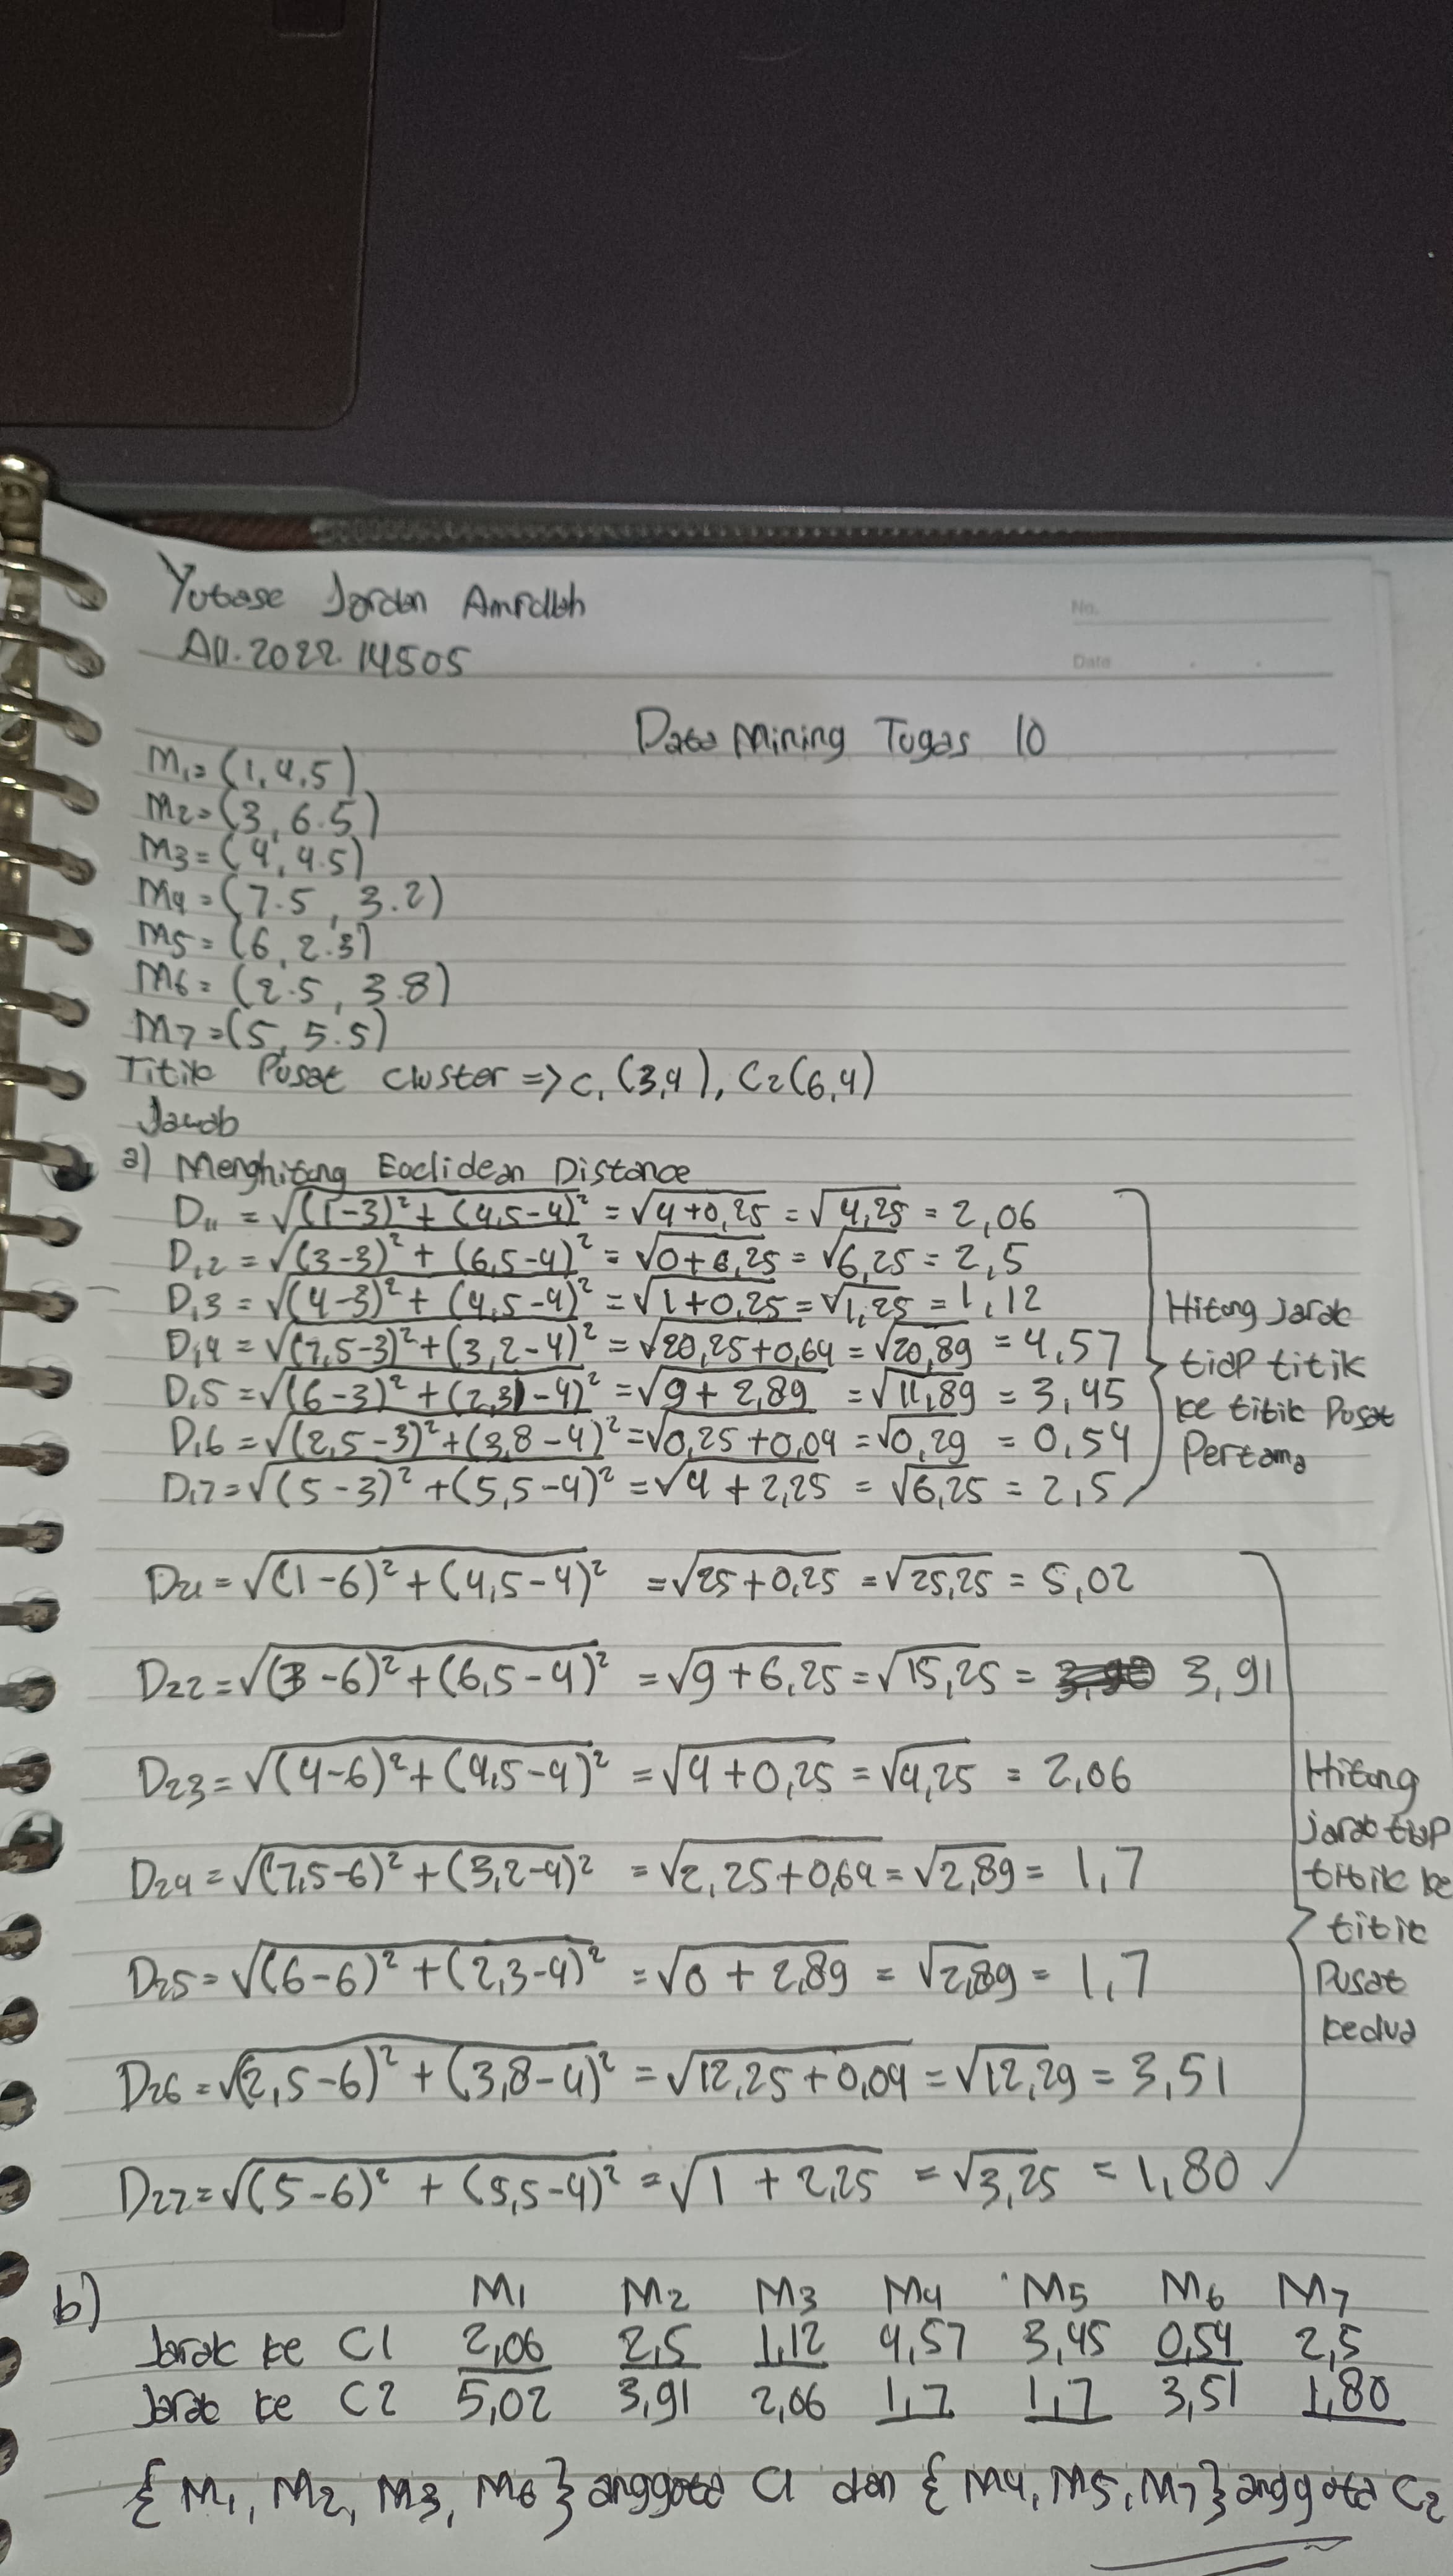 Yubase Jordan Amrullah
A11.2022.14505
No.
Date
Data Mining Tugas 10
M1=(1,4,5)
M2=(3,6.5)
M3=(4,4.5)
M4=(7.5,3.2)
M5=(6,2.3)
M6=(2.5,3.8)
M7=(5,5.5)
Titik Pusat Cluster => C1(3,4), C2(6,4)
Jawab
a) Menghitung Euclidean Distance
D11 = √(1-3)²+(4,5-4)² = √4+0,25 = √4,25 = 2,06
D12 = √(3-3)²+(6,5-4)² = √0+6,25 = √6,25 = 2,5
D13 = √(4-3)²+(4,5-4)² = √1+0,25 = √1,25 = 1,12
D14 = √(7,5-3)²+(3,2-4)² = √20,25+0,64 = √20,89 = 4,57
D15 = √(6-3)²+(2,3)-4)² = √9+2,89 = √11,89 = 3,45
D16 = √(2,5-3)²+(3,8-4)² = √0,25+0,04 = √0,29 = 0,54
D17 = √(5-3)²+(5,5-4)² = √4+2,25 = √6,25 = 2,5
Hitung Jarak
tiap titik
ke titik Pusat
Pertama
D21 = √(1-6)²+(4,5-4)² = √25+0,25 = √25,25 = 5,02
D22 = √(3-6)²+(6,5-4)² = √9+6,25 = √15,25 = 3,91
D23 = √(4-6)²+(4,5-4)² = √4+0,25 = √4,25 = 2,06
D24 = √(7,5-6)²+(3,2-4)² = √2,25+0,64 = √2,89 = 1,7
D25 = √(6-6)²+(2,3-4)² = √0+2,89 = √2,89 = 1,7
D26 = √(2,5-6)²+(3,8-4)² = √12,25+0,04 = √12,29 = 3,51
D27 = √(5-6)²+(5,5-4)² = √1+2,25 = √3,25 = 1,80
Hitung
jarak tiap
titik ke
titik
Pusat
kedua
b) M1 M2 M3 M4 M5 M6 M7
Jarak ke C1 2,06 2,5 1,12 4,57 3,45 0,54 2,5
Jarak ke C2 5,02 3,91 2,06 1,7 1,7 3,51 1,80
{M1, M2, M3, M6} anggota C1 dan {M4, M5, M7} anggota C2